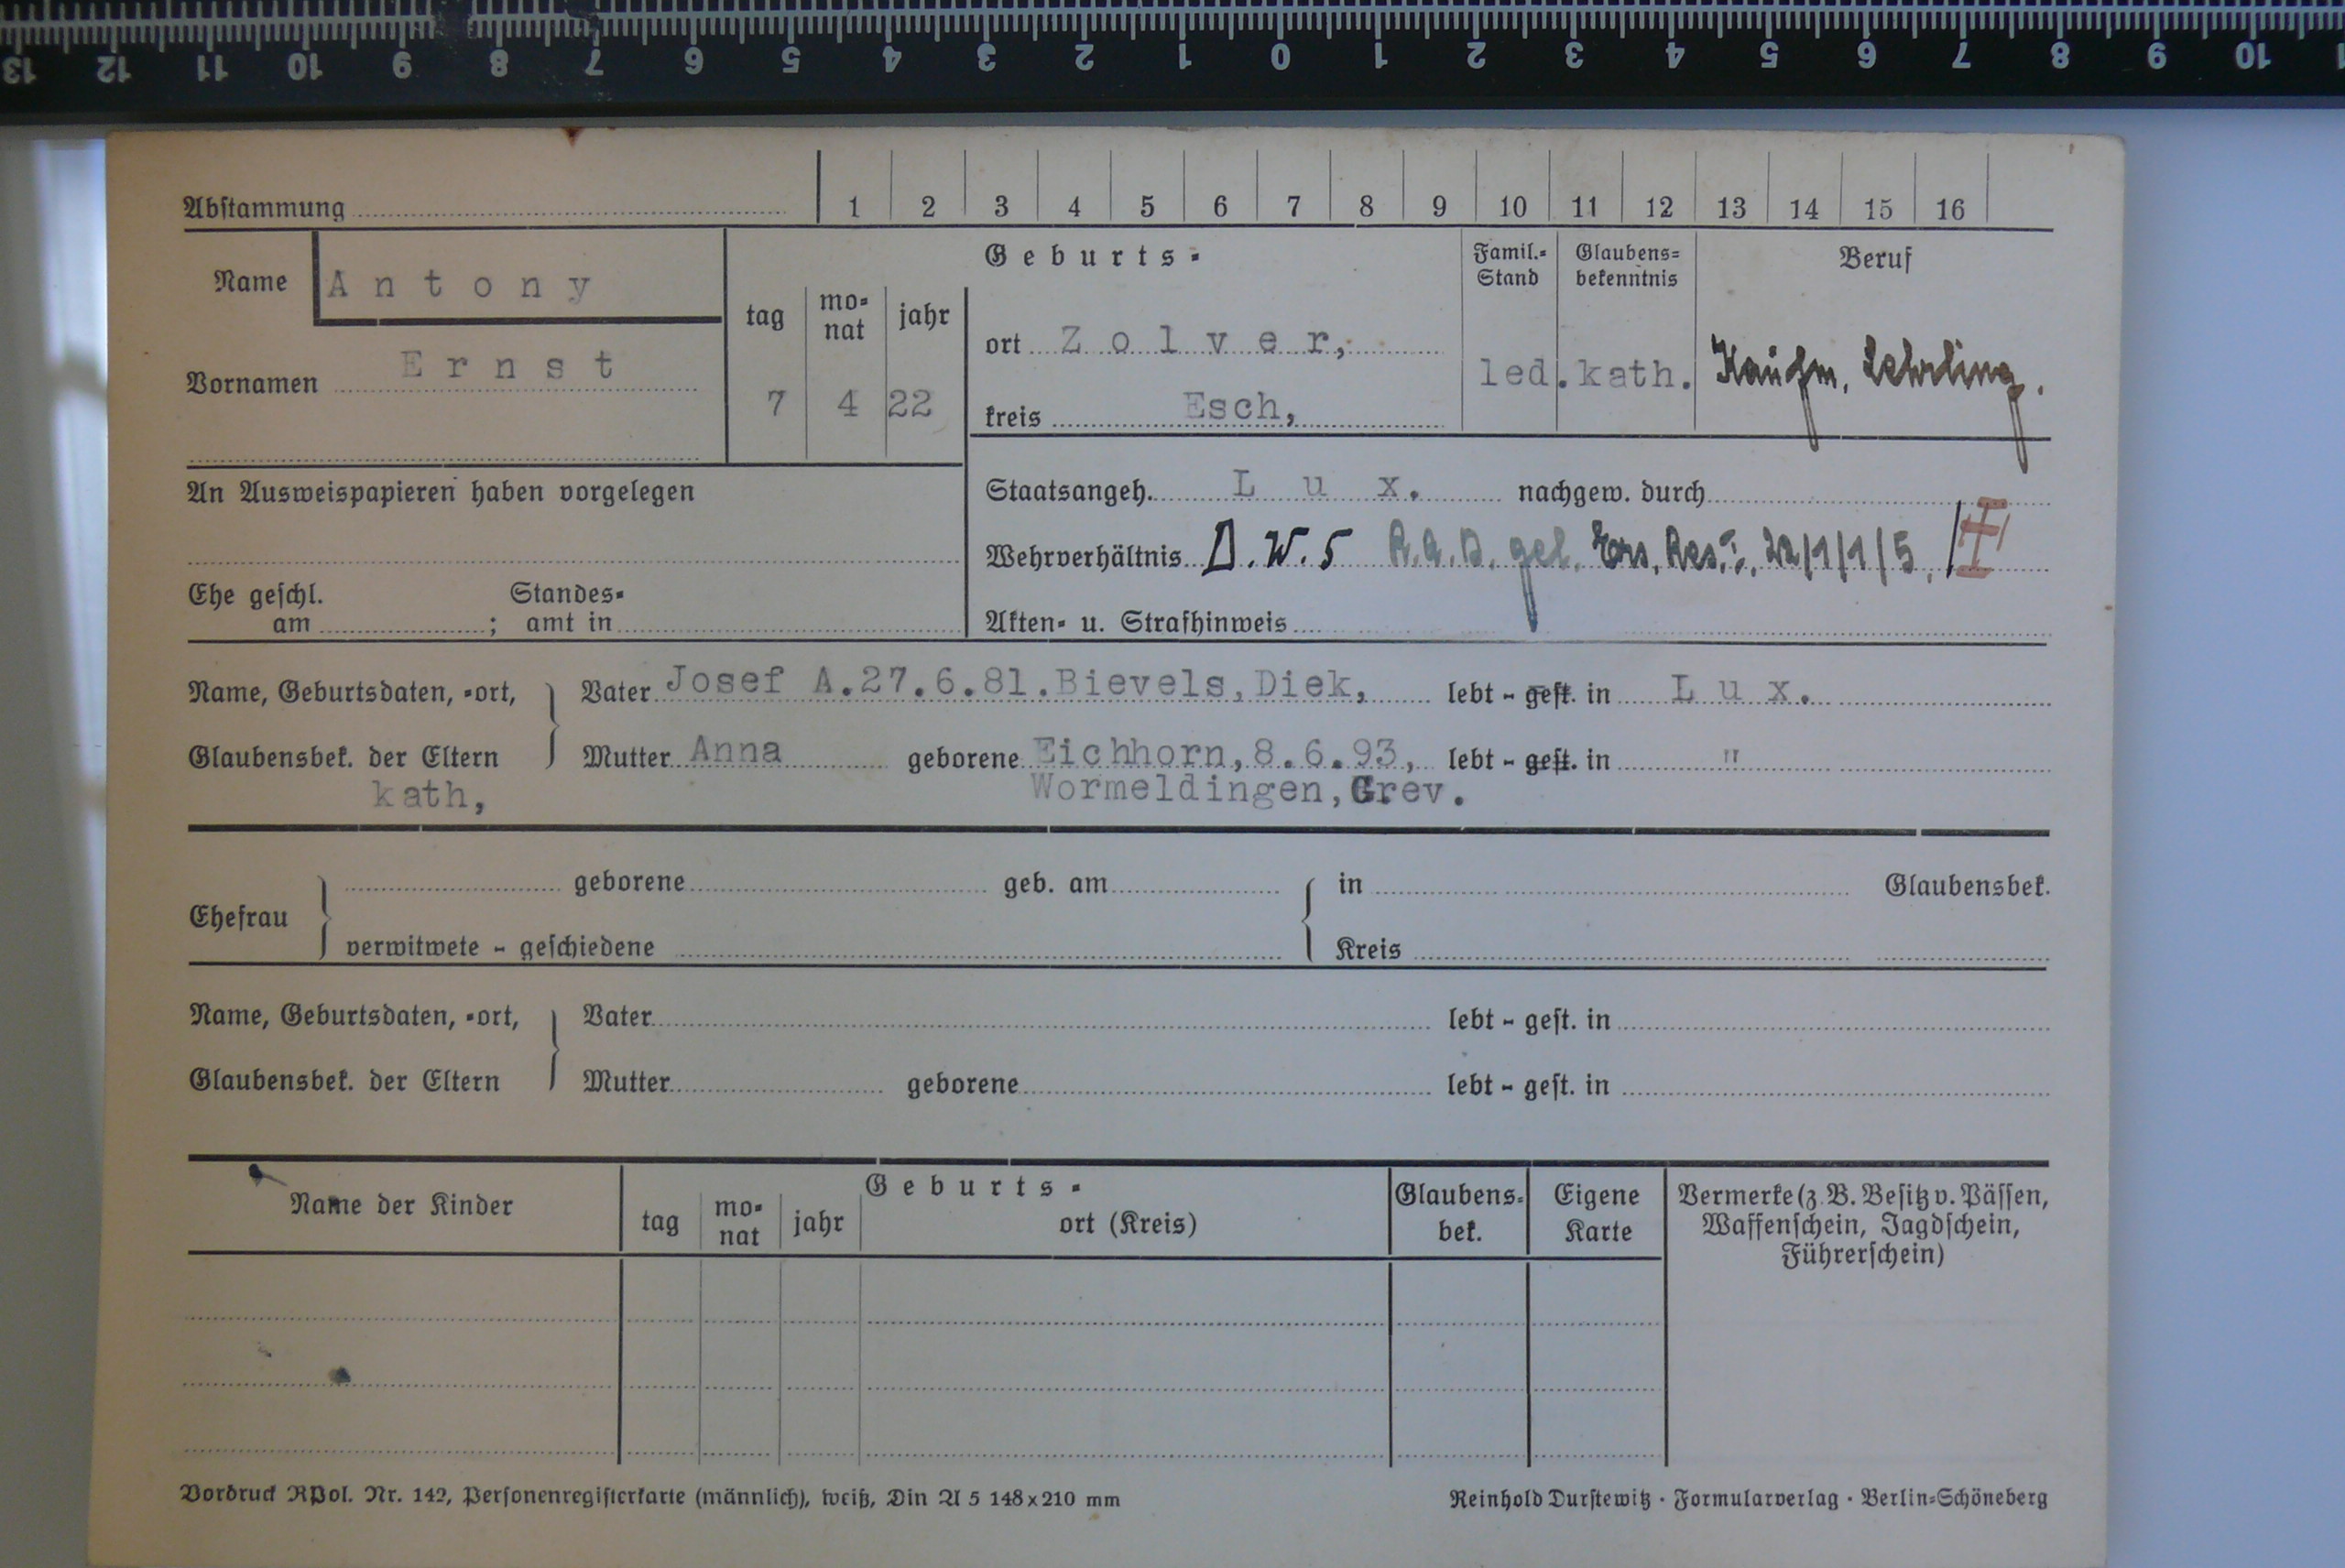 13 12 11 10 9 8 7 6 5 4 3 2 1 0 1 2 3 4 5 6 7 8 9 10
Abstammung 1 2 3 4 5 6 7 8 9 10 11 12 13 14 15 16
Name Antony
Vornamen Ernst
Geburts-
tag mo-nat jahr
7 4 22
ort Zolver,
kreis Esch,
Famil.-Stand
led.
Glaubens-bekenntnis
kath.
Beruf
Kaufm. Lehrling.
An Ausweispapieren haben vorgelegen
Staatsangeh. Lux. nachgew. durch
Wehrverhältnis D.W.5 R.A.D. gel. Ers. Res. I. 22/1/1/5.
Ehe geschl. am ; Standes-amt in
Akten- u. Strafhinweis
Name, Geburtsdaten, -ort, Vater Josef A.27.6.81.Bievels,Diek, lebt - gest. in Lux.
Glaubensbek. der Eltern Mutter Anna geborene Eichhorn,8.6.93, lebt - gest. in "
kath, Wormeldingen,Grev.
Ehefrau geborene geb. am in Glaubensbek.
verwitwete - geschiedene Kreis
Name, Geburtsdaten, -ort, Vater lebt - gest. in
Glaubensbek. der Eltern Mutter geborene lebt - gest. in
Name der Kinder
Geburts-
tag mo-nat jahr ort (Kreis)
Glaubens-bek.
Eigene Karte
Vermerke (z. B. Besitz v. Pässen,
Waffenschein, Jagdschein,
Führerschein)
Vordruck RPol. Nr. 142, Personenregisterkarte (männlich), weiß, Din A 5 148x210 mm
Reinhold Durstewitz · Formularverlag · Berlin-Schöneberg